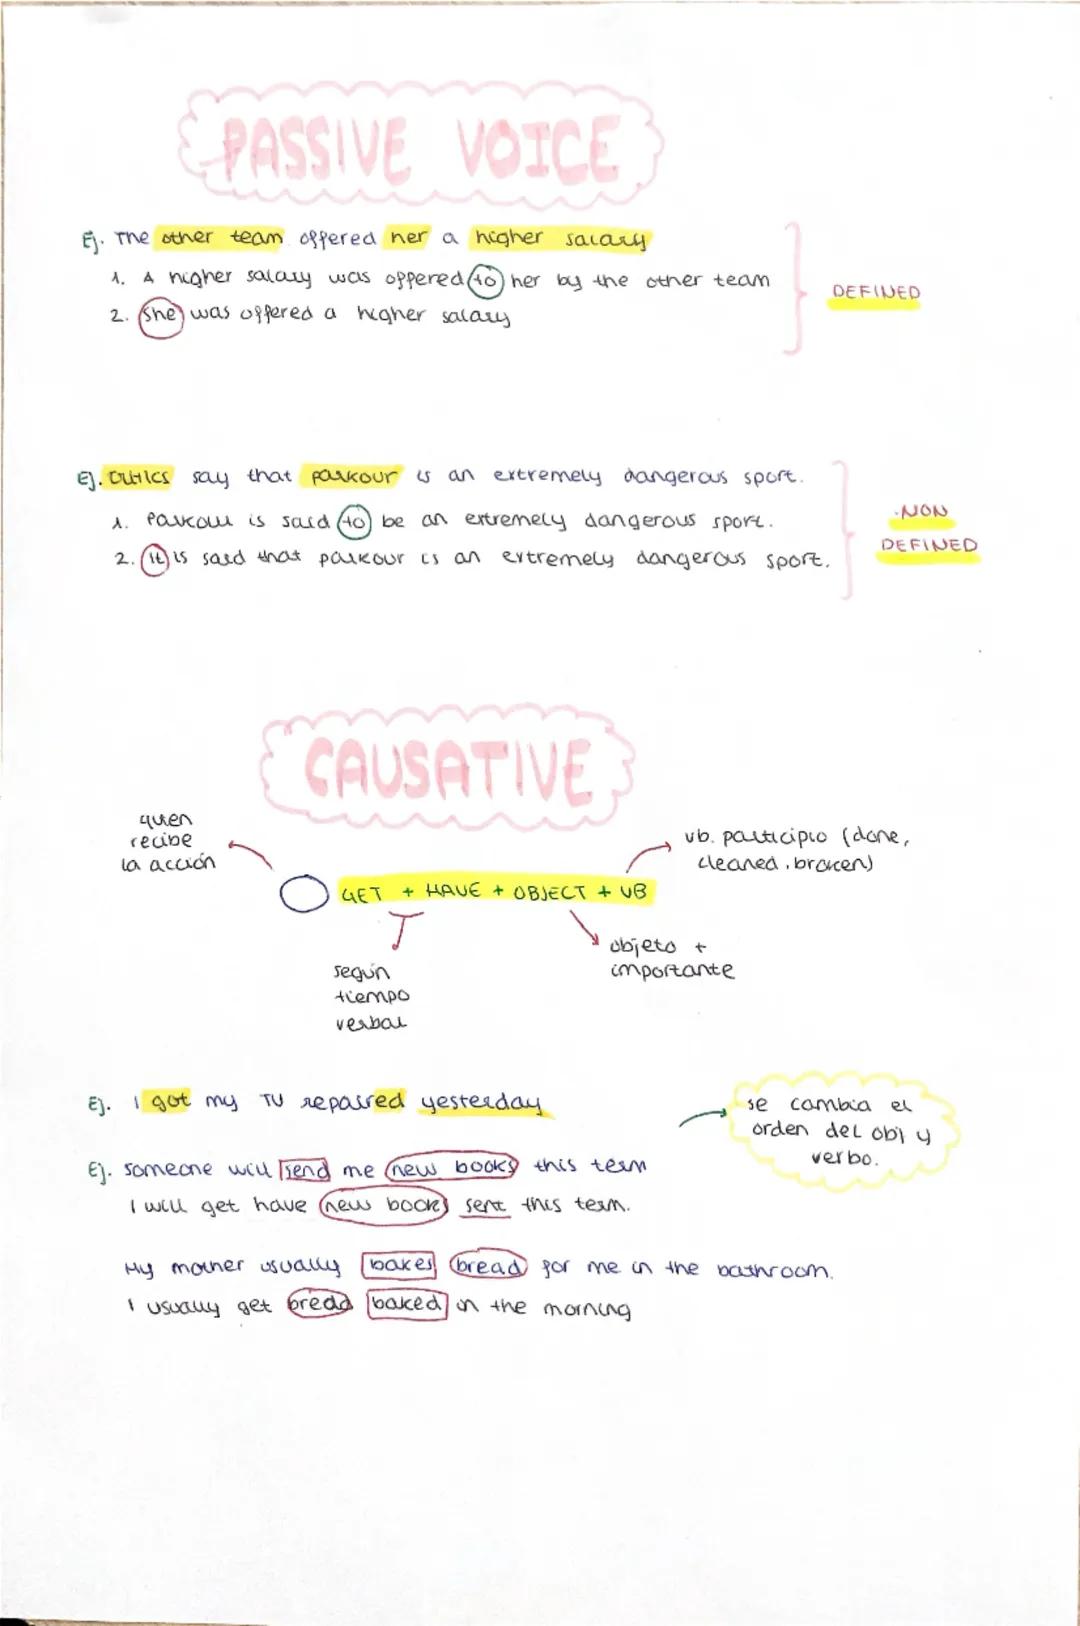 PASSIVE VOICE
Ej. The other team offered her a higher salary
1. A higher salary was offered to her by the other team
2. She was offered a higher salary
DEFINED
Ej. Critics say that parkour is an extremely dangerous sport.
1. Parkour is said to be an extremely dangerous sport.
2. it is said that parkour is an extremely dangerous sport.
NON
DEFINED
CAUSATIVE
quien
recibe
la acción
vb. participio (done,
cleaned, broken)
GET + HAVE + OBJECT + VB
según
tiempo
verbal
objeto +
importante
Ej. I got my TV repaired yesterday
se cambia el
orden del obj y
verbo.
Ej. Someone will send me new books this term
I will get have new books sent this term.
My mother usually bakes bread for me in the bathroom.
I usually get bread baked in the morning